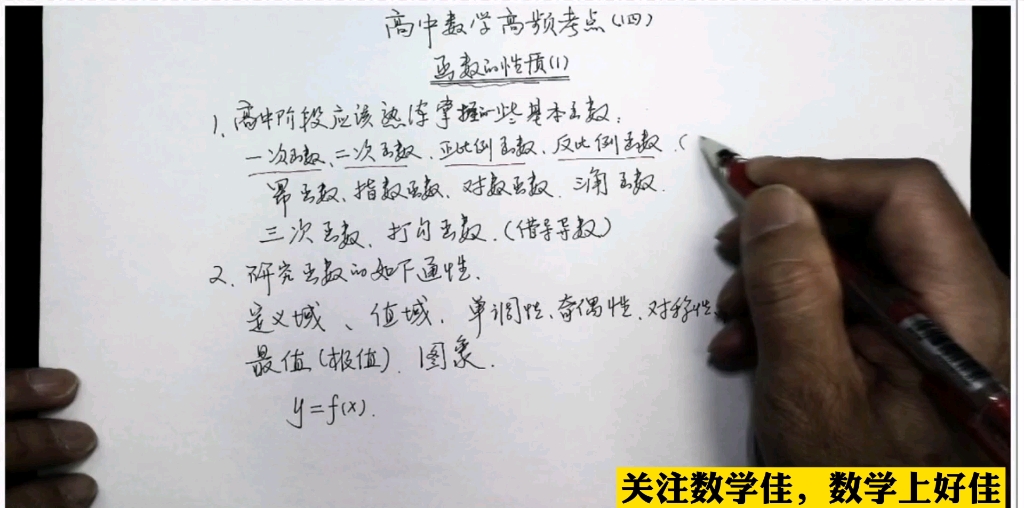 高中数学高频考点(四)
函数的性质(1)
1、高中阶段应该熟练掌握的些基本函数:
一次函数、二次函数、正比例函数、反比例函数、(
幂函数、指数函数、对数函数、三角函数.
三次函数、打勾函数.(借导导数)
2、研究函数的如下通性.
定义域、值域、单调性、奇偶性、对称性、
最值(极值)、图象.
y=f(x).
关注数学佳，数学上好佳